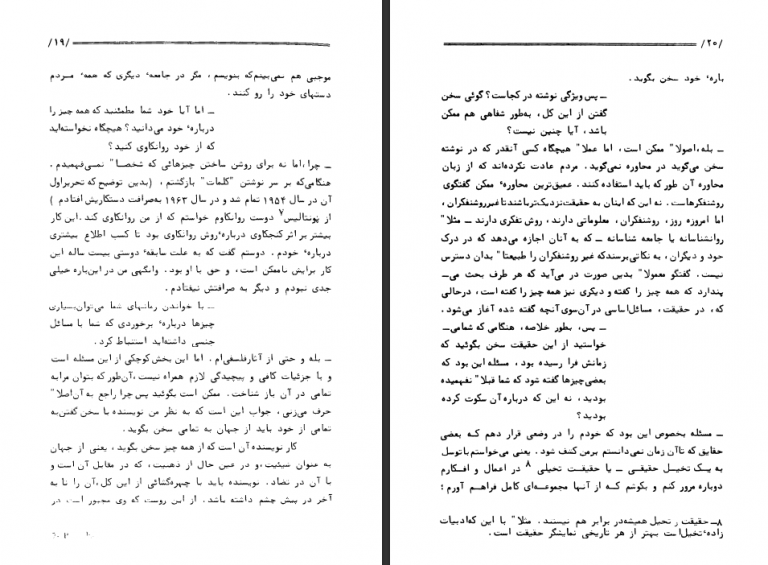 /۱۹/
موجبی هم نمی‌بینم‌که بنویسم ، مگر در جامعه‌ٔ دیگری که همه‌ٔ مردم
دستهای خود را رو کنند .
ــ اما آیا خود شما مطمئنید که همه چیز را
درباره‌ٔ خود می‌دانید ؟ هیچگاه نخواسته‌اید
که از خود روانکاوی کنید ؟
ــ چرا ،اما نه برای روشن ساختن چیزهائی که شخصا" نمی‌فهمیدم .
هنگامی‌که بر سر نوشتن "کلمات" بازگشتم ، (بدین توضیح که تحریراول
آن در سال ۱۹۵۴ تمام شد و در سال ۱۹۶۳ به‌صرافت دستکاریش افتادم )
از پونتالیس۷ دوست روانکاوم خواستم که از من روانکاوی کند. این کار
بیشتر بر اثر کنجکاوی درباره‌ٔ روش روانکاوی بود تا کسب اطلاع بیشتری
درباره‌ٔ خودم . دوستم گفت که به علت سابقه‌ٔ دوستی بیست ساله این
کار برایش ناممکن است ، و حق با او بود . وانگهی من در این‌باره خیلی
جدی نبودم و دیگر به صرافتش نیفتادم .
ــ با خواندن رمانهای شما می‌توان‌بسیاری
چیزها درباره‌ٔ برخوردی که شما با مسائل
جنسی داشته‌اید استنباط کرد .
ــ بله و حتی از آثارفلسفی‌ام . اما این بخش‌کوچکی از این مسئله است
و با جزئیات کافی و پیچیدگی لازم همراه نیست ،آن‌طور‌که بتوان مرا‌به
تمامی در آن باز شناخت . ممکن است بگوئید پس‌چرا راجع به آن‌اصلا"
حرف می‌زنی ، جواب این است که به نظر من نویسنده با سخن گفتن‌به
تمامی از خود باید از جهان به تمامی سخن بگوید .
کار نویسنده آن است که از همه چیز سخن بگوید ، یعنی از جهان
به عنوان شیئیت ،و در عین حال از ذهنیت ، که در مقابل آن است و
با آن در تضاد . نویسنده باید با چهره‌گشائی از این کل ،آن را تا به
آخر در پیش چشم داشته باشد . از این روست که وی مجبور است در
/۲۰/
باره‌ٔ خود سخن بگوید .
ــ پس ویژگی نوشته در کجاست ؟ گوئی سخن
گفتن از این کل ، به‌طور شفاهی هم ممکن
باشد ، آیا چنین نیست ؟
ــ بله ،اصولا" ممکن است ، اما عملا" هیچگاه کسی آنقدر که در نوشته
سخن می‌گوید در محاوره نمی‌گوید . مردم عادت نکرده‌اند که از زبان
محاوره آن طور که باید استفاده کنند . عمیق‌ترین محاوره‌ٔ ممکن گفتگوی
روشنفکرهاست . نه این که اینان به حقیقت‌نزدیک‌ترباشند تا‌غیرروشنفکران ،
اما امروزه روز ، روشنفکران ، معلوماتی دارند ، روش تفکری دارند ــ مثلا"
روانشناسانه یا جامعه شناسانه ــ که به آنان اجازه می‌دهد که در درک
خود و دیگران ، به نکاتی‌برسند‌که غیر روشنفکران را طبیعتا" بدان دسترس
نیست . گفتگو معمولا" بدین صورت در می‌آید که هر طرف بحث می‌ـ
پندارد که همه چیز را گفته و دیگری نیز همه چیز را گفته است ، درحالی
که ، در حقیقت ، مسائل‌اساسی در آن‌سوی آنچه گفته شده آغاز می‌شود .
ــ پس ، بطور خلاصه ، هنگامی که شما‌می‌ـ
خواستید از این حقیقت سخن بگوئید که
زمانش فرا رسیده بود ، مسئله این بود که
بعضی‌چیزها گفته شود که شما قبلا" نفهمیده
بودید ، نه این که درباره آن سکوت کرده
بودید ؟
ــ مسئله بخصوص این بود که خودم را در وضعی قرار دهم که بعضی
حقایق که تاآن زمان نمی‌دانستم برمن کشف شود . یعنی می‌خواستم‌باتوسل
به یک تخیل حقیقی ــ یا حقیقت تخیلی ۸ در اعمال و افکارم
دوباره مرور کنم و بکوشم کـه از آنها مجموعه‌ای کامل فراهـم آورم ؛
۸ــ حقیقت و تخیل همیشه‌در برابر هم نیستند . مثلا" با این که‌ادبیات
زاده‌ٔ تخیل‌است بهتر از هر تاریخی نمایشگر حقیقت است .